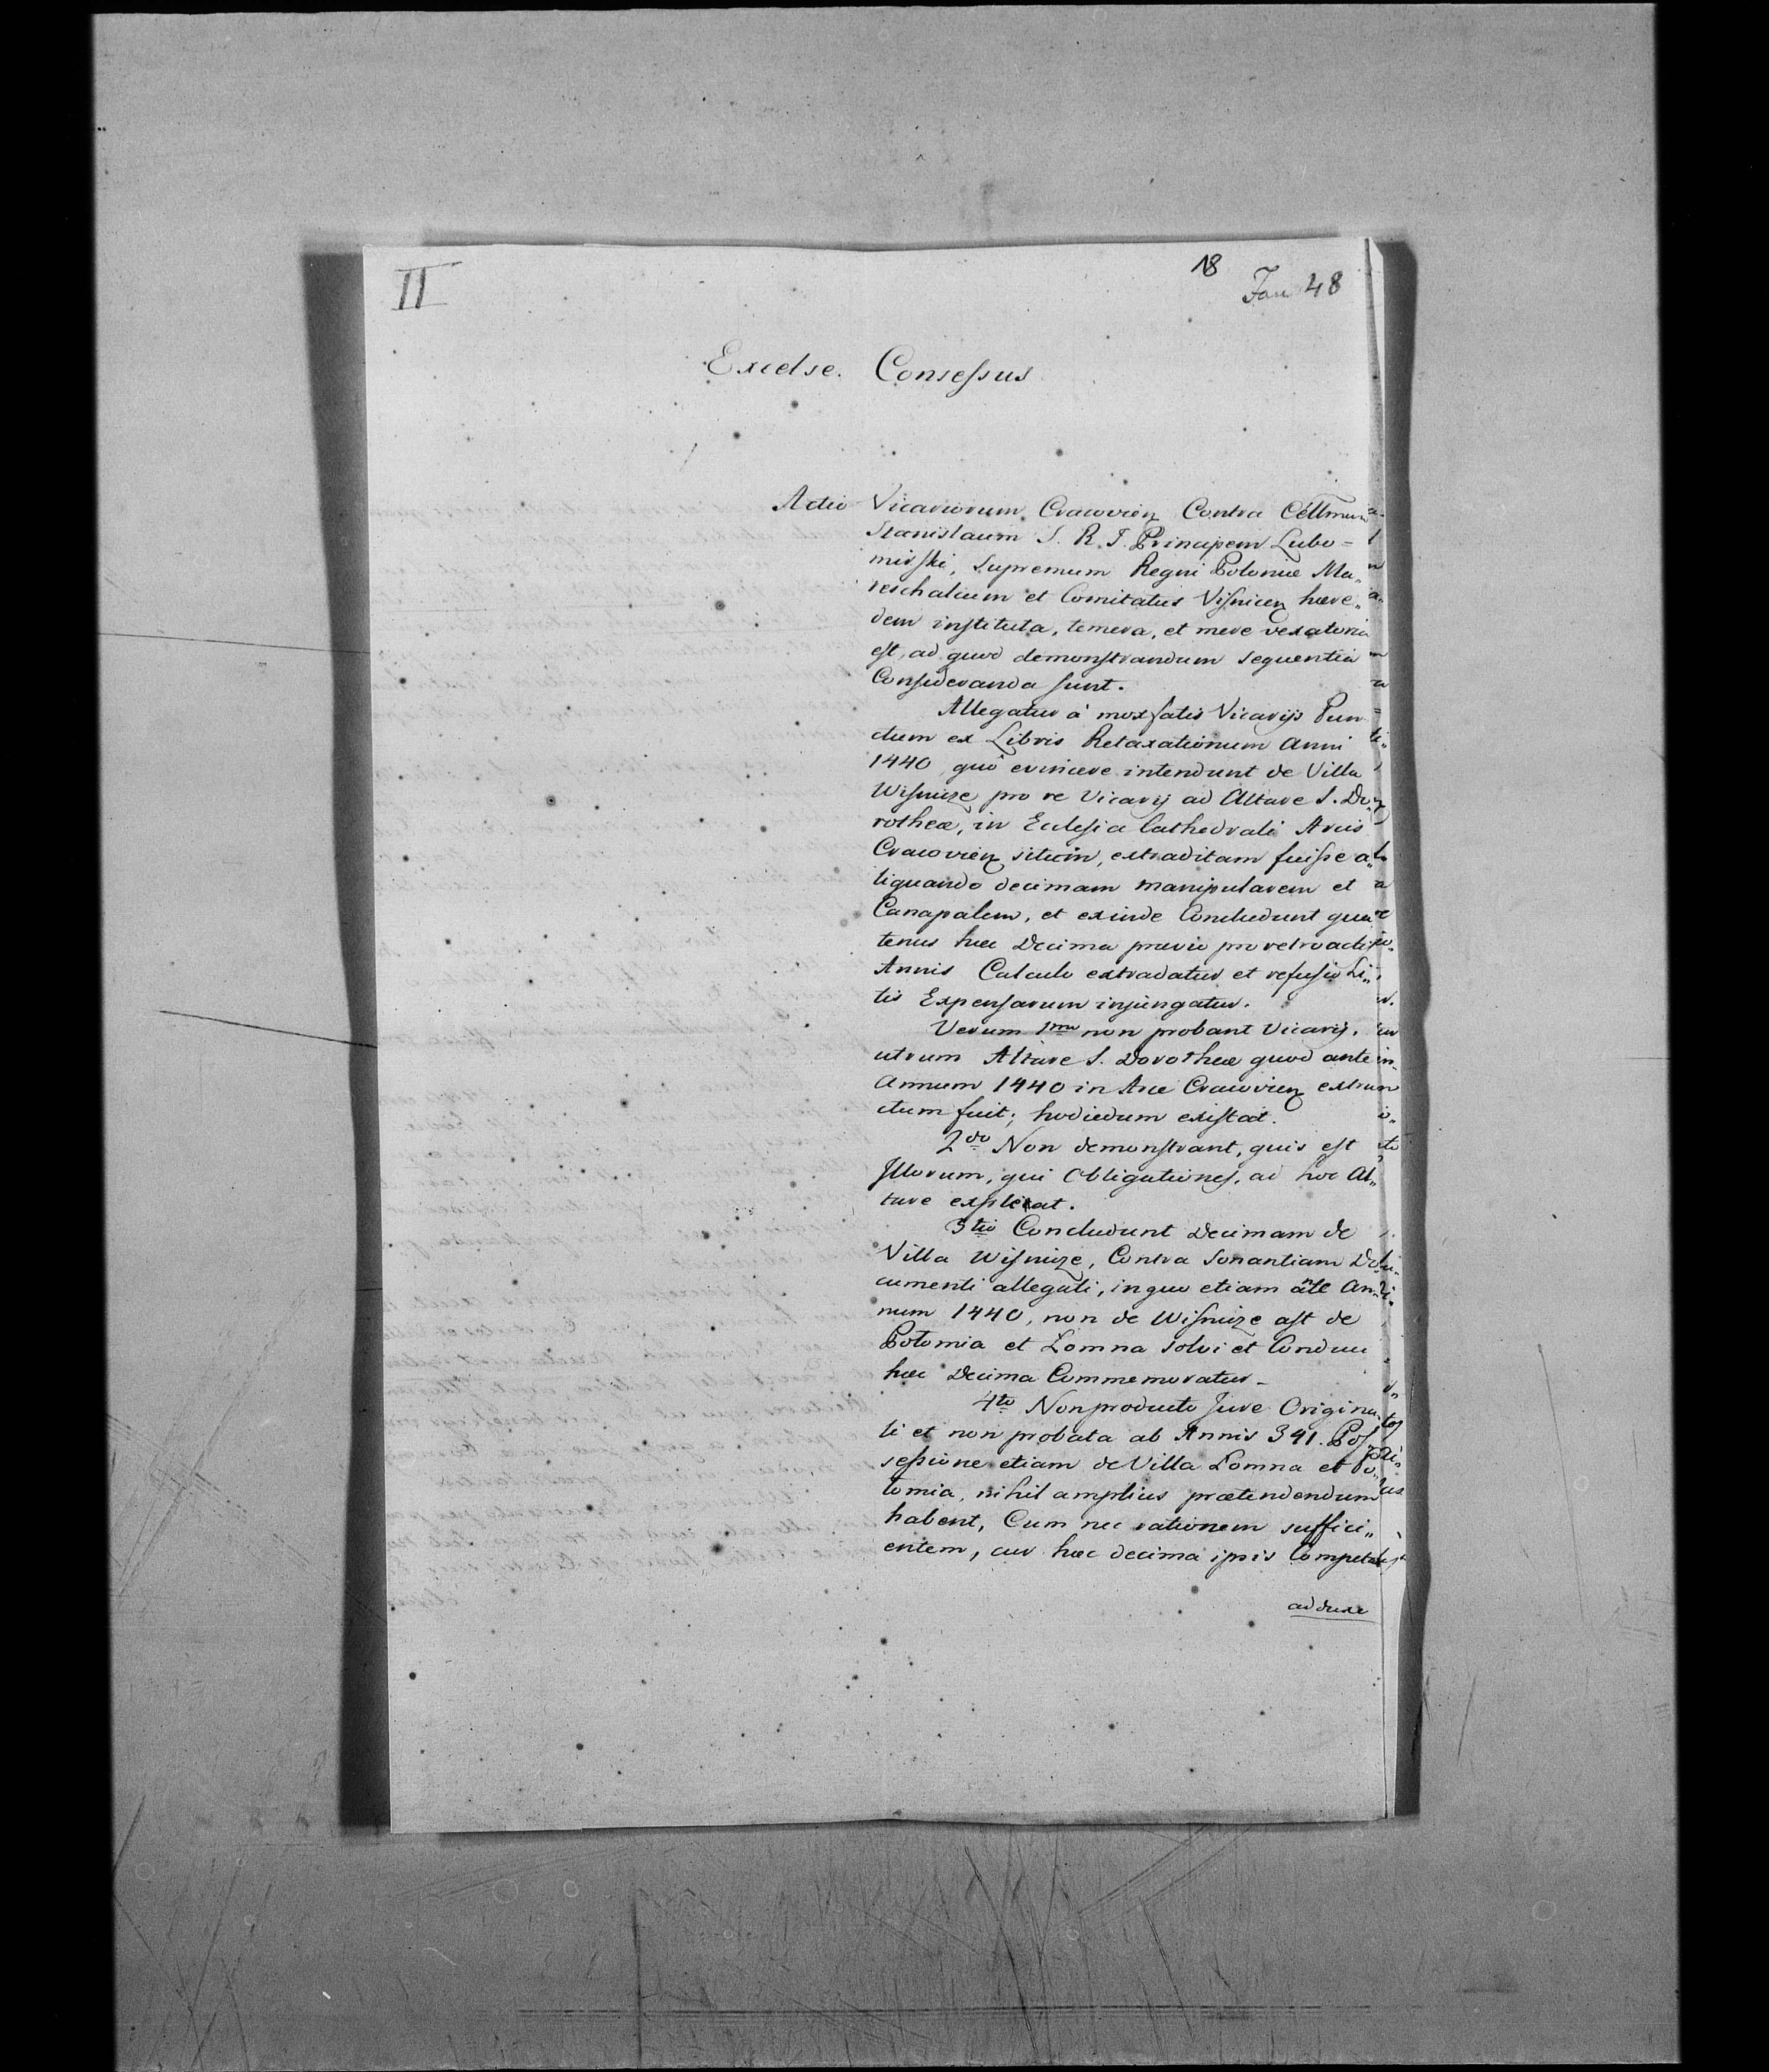 II
18
Fan 48
Excelse Consessus
Actio Vicariorum Cracovien Contra Cellmum
Stanislaum S. R. I. Principem Lubo=
mirski, Supremum Regni Poloniæ Ma„
reschalcum et Comitatus Visnicen hære„
dem instituta, temera, et mere vexatoria
est, ad quod demonstrandum sequentia
Consideranda sunt.
Allegatur à moxfatis Vicarijs Pun
ctum ex Libris Relaxationum Anni
1440 quô evincere intendunt de Villa
Wisnicze pro re Vicarij ad Altare S. Do„
rotheæ, in Ecclesia Cathedrali Arcis
Cracovien situm, extraditam fuisse a„
liquando decimam manipularem et
Canapalem, et exinde Concludunt qua
tenus hæc Decima prævio pro retroactis
Annis Calculo extradatur et refusio Li„
tis Expensarum injungatur.
Verum 1mo non probant Vicarij,
utrum Altare S. Dorotheæ quod ante
Annum 1440 in Arce Cracovien extru
ctum fuit; hodiedum existat.
2do Non demonstrant, quis est
Illorum, qui Obligationes, ad hoc Al„
tare expleat.
3tio Concludunt Decimam de
Villa Wisnicze, Contra Sonantiam Do„
cumenti allegati, in quo etiam ãte An„
num 1440, non de Wisnicze ast de
Polomia et Lomna solvi et Conduci
hæc Decima Commemoratur.
4to Non producto Jure Origina„
li et non probata ab Annis 341. Pos„
sessione etiam de Villa Lomna et Po„
lomia, nihil amplius prætendendum
habent, Cum nec rationem suffici„
entem, cur hæc decima ipsis Competat
adduxe